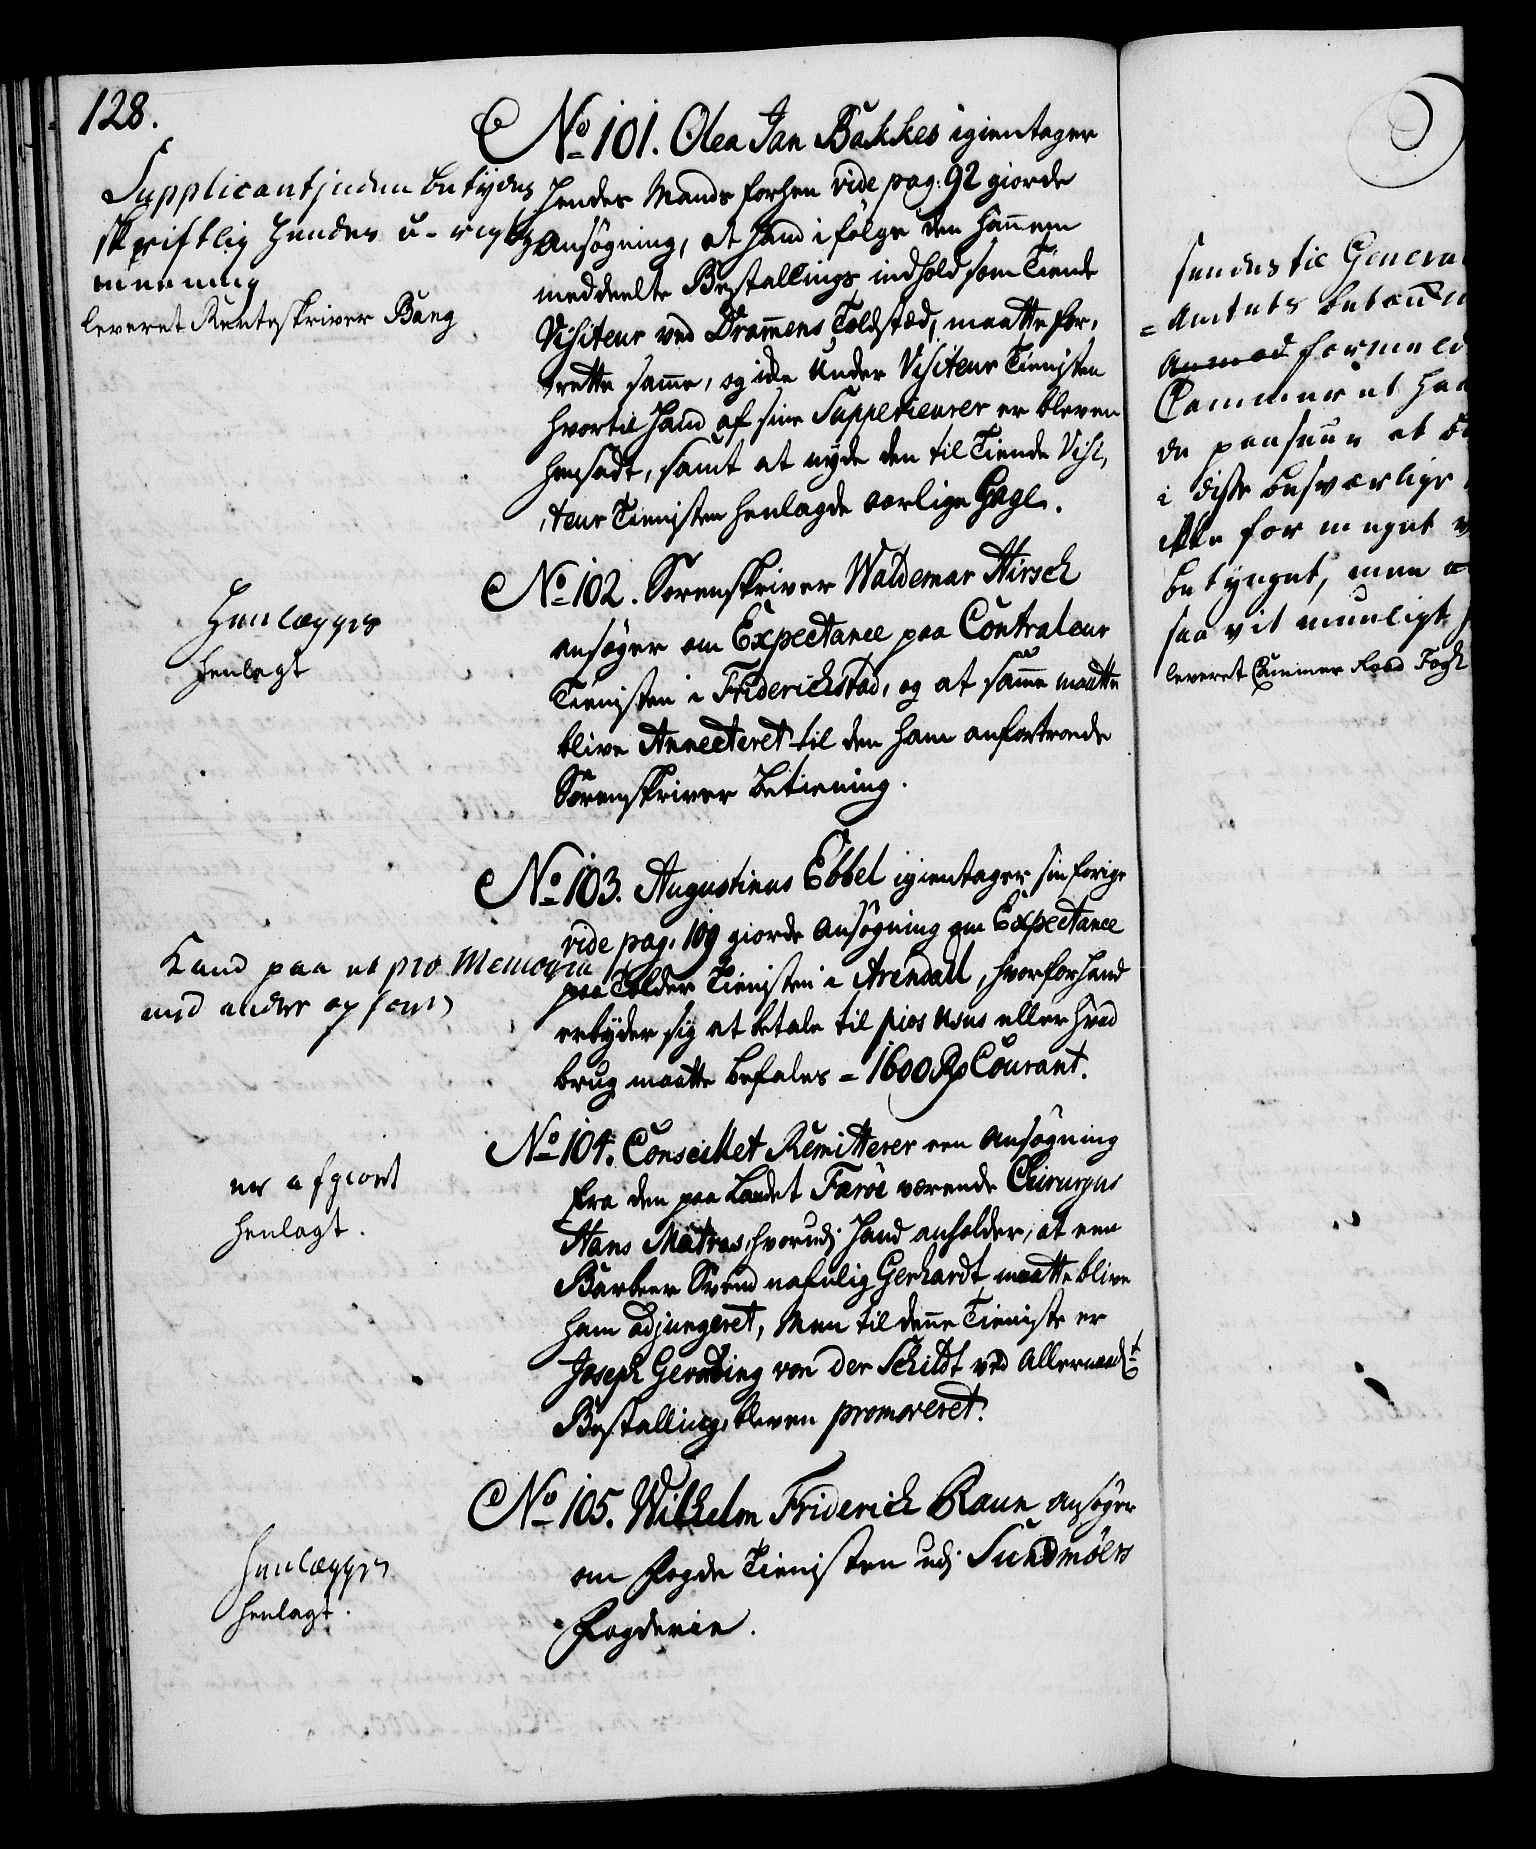 128.
Supplicantinden betydes
skriftlig hendes u-rigtige
meening
leveret Renteskriver Bang
No 101. Olea Jan Bakkes igientager
hendes Mands forhen vide pag: 92 giorde
Ansøgning, at hand i følge den hannem
meddeelte Bestallings indhold som Tiende
Visiteur ved Drammens Toldstæd, maatte for,
rette samme, og icke Under Visiteur Tienisten
hvortil hand af sine Suppericurer er bleven
hensadt, samt at nyde den til Tiende Visi,
,teur Tienisten henlagde aarlige Gage.
Henlægges
henlagt
No 102. Sorenskriver Waldemar Hirsch
ansøger om Expectance paa Contraleur
Tienisten i Friderichstad, og at samme maatte
blive Annecteret til den ham anfortroede
Sorenskriver betiening.
Land paa et pro Memoria
med andre opføres
No 103. Augustinus Ebbel igientager sin forige
vide pag. 109 giorde Ansøgning om Expectance
paa Tolder Tienisten i Arendall, hvorfor hand
erbyder sig at betale til pios usus eller hvad
brug maatte befales = 1600 Rd Courant.
er afgiort
henlagt.
No 104. Conseillet Remitterer een Ansøgning
fra den paa Landet Færöe værende Chirurgus
Hans Matras, hvorudj hand anholder, at een
Barbeer Svend nafnlig Gerhardt maatte blive
ham adjungeret, Men til denne Tieniste er
Joseph Gerding von der Schildt ved Allernaadt
Bestalling bleven promoveret.
Henlægges
henlagt.
No 105. Wilhelm Friderich Raun ansøger
om Fogde Tienisten udj Sundmöers
Fogderie.
sendes til General
= Amtets betænk
Anmod formeld
Cammeret had
da
i disse besværlige
ikke for meget
betynget, men
saa vit mueligt
leveret Cammer Raad